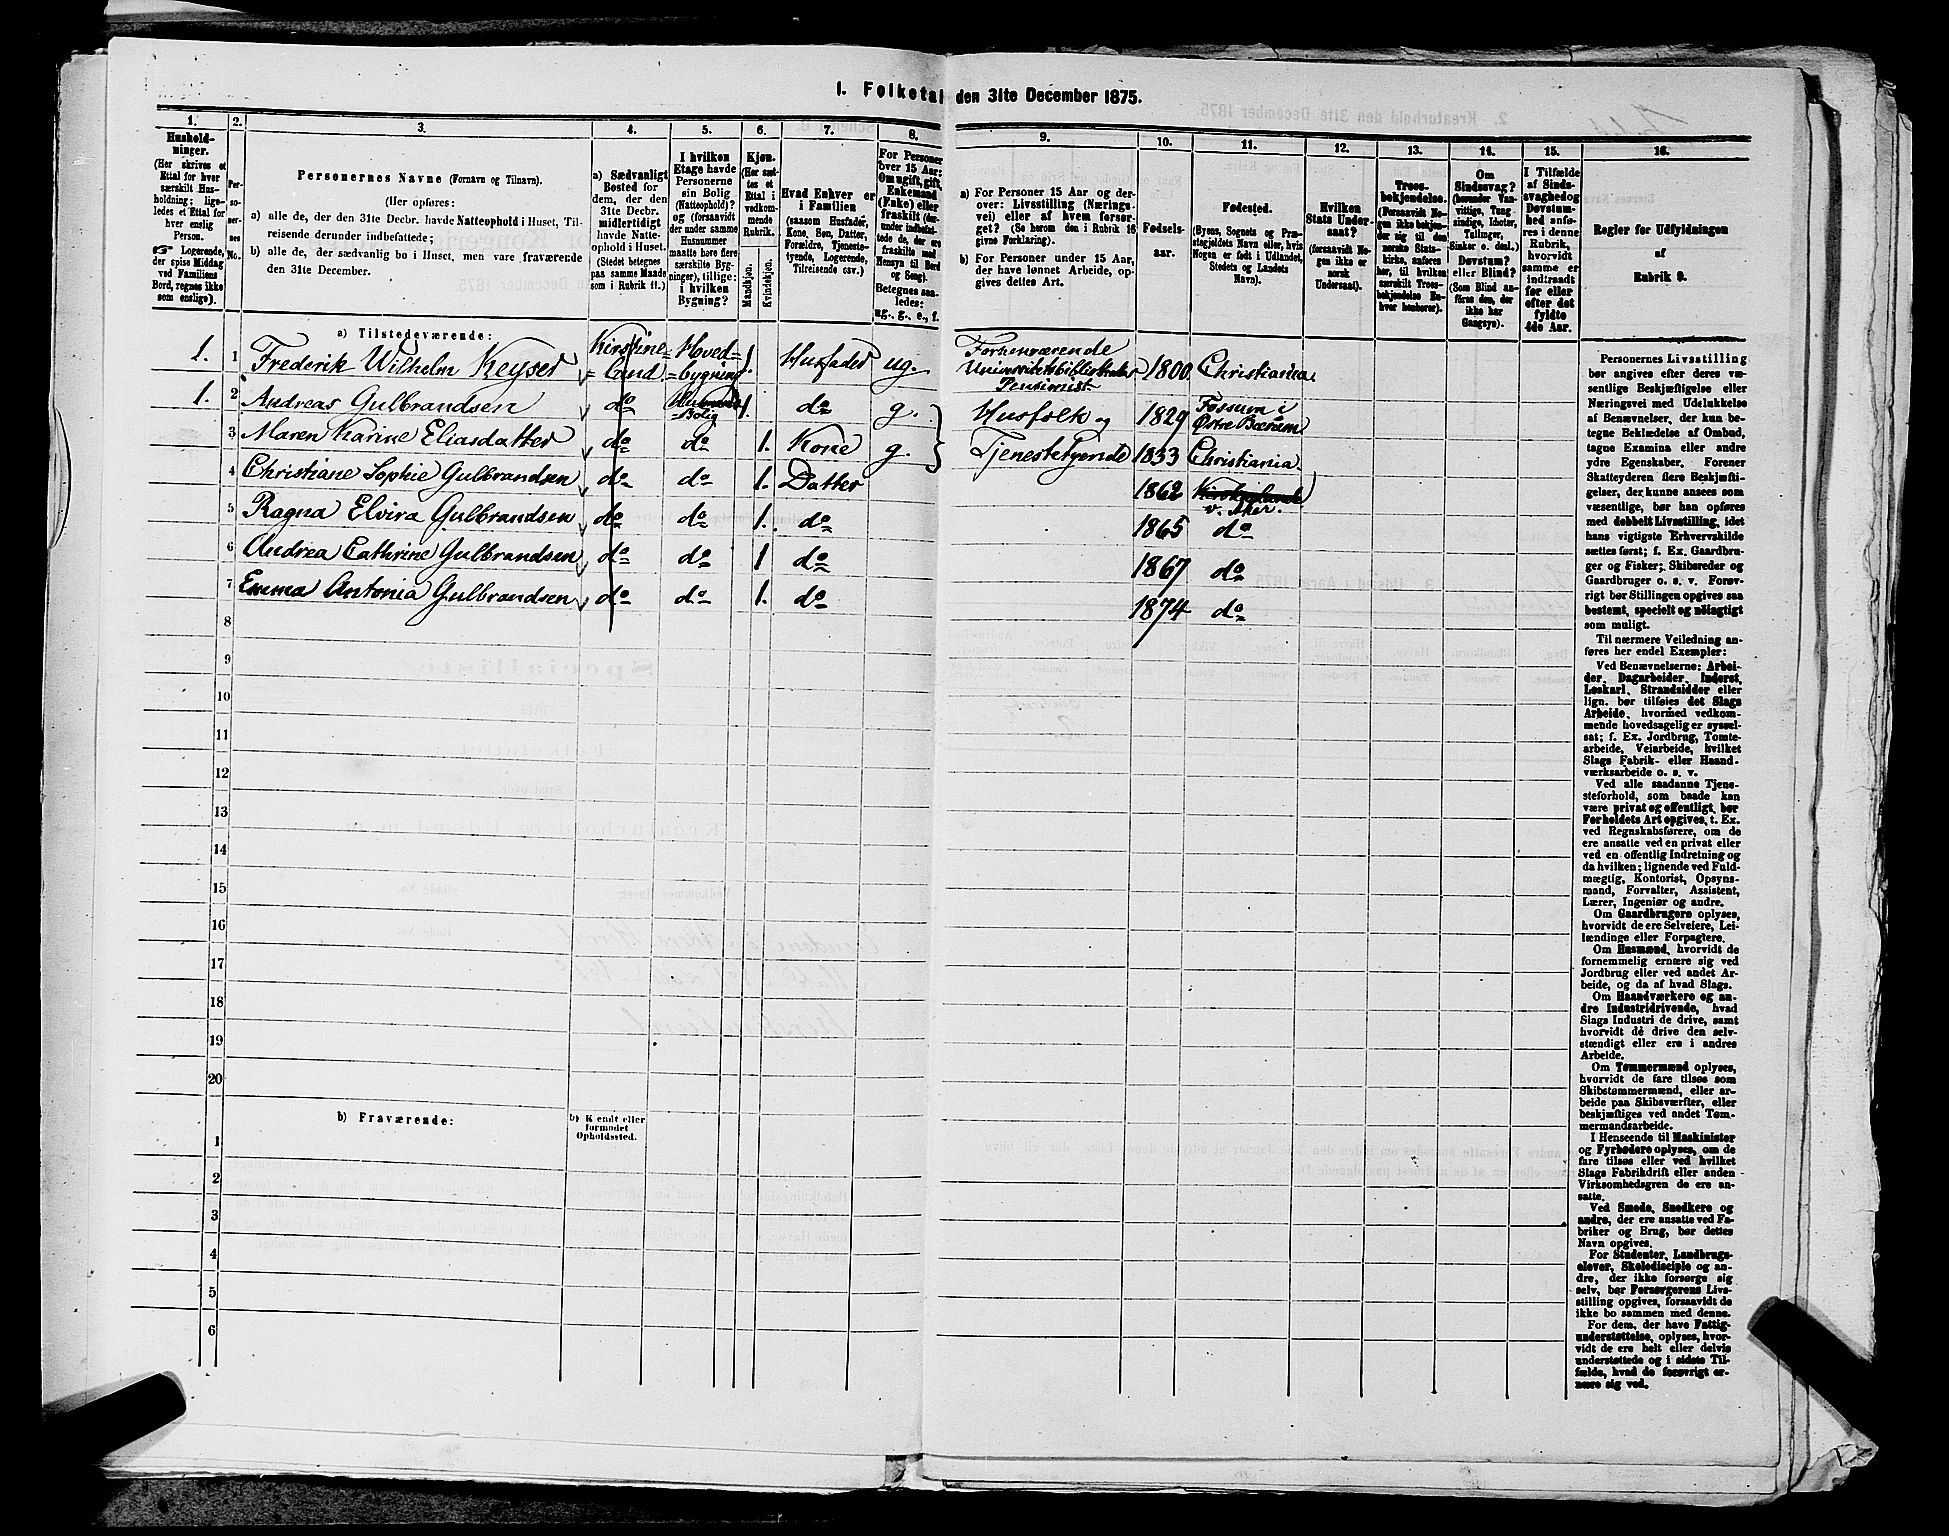 1. Folketal den 31te December 1875.
1.
Hushold-
ninger.
(Her skrives et
Ettal for hver
særskilt Hus-
holdning; lige-
ledes et Ettal for
hver enslig
Person.
Logerende,
der spise Middag
ved Familiens
Bord, regnes ikke
som enslige).
2.
Per-
so-
ner-
nes
No.
3.
Personernes Navne (Fornavn og Tilnavn).
(Her opføres:
a) alle de, der den 31te Decbr. havde Natteophold i Huset, Til-
reisende derunder indbefattede;
b) alle de, der sædvanlig bo i Huset, men vare fraværende
den 31te December.
4.
a) Sædvanligt
Bosted for
dem, der den
31te Decbr.
midlertidigt
havde Natte-
ophold i Huset.
(Stedet betegnes
paa samme Maade
som i Rubrik 11.)
5.
I hvilken
Etage havde
Personerne
sin Bolig
(Natteophold)?
og (forsaavidt
der under samme
Husnummer
maatte høre flere
særskilte Byg-
ninger), tillige:
i hvilken
Bygning?
6.
Kjøn.
(Her sæt-
tes et
Ettal i
vedkom-
mende
Rubrik.
Mandkjøn.
Kvindekjøn.
7.
Hvad Enhver er
i Familien
(saasom Husfader,
Kone, Søn, Datter,
Forældre, Tjeneste-
tyende, Logerende,
Tilreisende osv.)
8.
For Personer
over 15 Aar:
Om ugift, gift,
Enkemand
(Enke) eller
fraskilt (der-
under indbefat-
tede de, der ere
fraskilte med
Hensyn til Bord
og Seng).
Betegnes saa-
ledes:
ug., g., e., f.
9.
a) For Personer 15 Aar og der-
over: Livsstilling (Nærings-
vei) eller af hvem forsør-
get? (Se herom den i Rubrik 16
givne Forklaring).
b) For Personer under 15 Aar,
der have lønnet Arbeide, op-
gives dettes Art.
10.
Fødsels-
aar.
11.
Fødested.
(Byens, Sognets og Præ-
stegjeldets Navn eller, hvis
Nogen er født i Udlandet,
Stedets og Landets
Navn).
12.
Hvilken
Stats Under-
saat?
(forsaavidt No-
gen ikke er
norsk
Undersaat).
13.
Troes-
bekjendelse.
(Forsaavidt No-
gen ikke bekjen-
der sig til den
norske Stats-
kirke, anføres
her, til hvilken
særskilt Troes-
bekjendelse En-
hver henhører).
14.
Om
Sindssvag?
(herunder Van-
vittige, Tung-
sindige, Idioter,
Tullinger,
Sinker o. desl.)
Døvstum?
eller Blind?
(Som Blind an-
føres den, der
ikke har
Gangsyn).
15.
I Tilfælde
af Sinds-
svaghed og
Døvstum-
hed anfø-
res i denne
Rubrik,
hvorvidt
samme er
indtraadt
før eller
efter det
fyldte
4de Aar.
16.
Regler for Udfyldningen
af
Rubrik 9.
a) Tilstedeværende:
1. 1 Frederik Wilhelm Keyser Kirstine=lund. Hoved=bygning 1. Husfader ug. Forhenværende Universitetsbibliothekar Pensionist 1800. Christiania.
1. 2 Andreas Gulbrandsen do Bolig 1. do g. Husfolk og 1829 Fossum i Østre Bærum
3 Maren Karine Eliasdatter do do 1. Kone g. Tjenestetyende 1833 Christiania.
4 Christiane Sophie Gulbrandsen do do 1. Datter 1862 v. Aker.
5 Ragna Elvira Gulbrandsen do do 1. do 1865 do
6 Andrea Cathrine Gulbrandsen do do 1 do 1867 do
7 Emma Antonia Gulbrandsen do do 1. do 1874 do
8
9
10
11
12
13
14
15
16
17
18
19
20
b) Fraværende:
b) Kjendt eller
formodet
Opholdssted.
1
2
3
4
5
6
Personernes Livsstilling
bør angives efter deres væ-
sentlige Beskjæftigelse eller
Næringsvei med Udelukkelse
af Benævnelser, der kun be-
tegne Beklædelse af Ombud,
tagne Examina eller andre
ydre Egenskaber. Forener
Skatteyderen flere Beskjæfti-
gelser, der kunne ansees som
væsentlige, bør han opføres
med dobbelt Livsstilling, idet
hans vigtigste Erhvervskilde
sættes først; f. Ex. Gaardbru-
ger og Fisker; Skibsreder og
Gaardbruger o. s. v. Forøv-
rigt bør Stillingen opgives saa
bestemt, specielt og nøiagtigt
som muligt.
Til nærmere Veiledning an-
føres her endel Exempler:
Ved Benævnelserne: Arbei-
der, Dagarbeider, Inderst,
Løskarl, Strandsidder eller
lign. bør tilføies det Slags
Arbeide, hvormed vedkom-
mende hovedsagelig er syssel-
sat; f. Ex. Jordbrug, Tomte-
arbeide, Veiarbeide, hvilket
Slags Fabrik- eller Haand-
værksarbeide o. s. v.
Ved alle saadanne Tjene-
steforhold, som baade kan
være privat og offentligt, bør
Forholdets Art opgives, t. Ex.
ved Regnskabsførere, om de
ere ansatte ved en privat eller
ved en offentlig Indretning og
da hvilken; lignende ved Fuld-
mægtig, Kontorist, Opsyns-
mand, Forvalter, Assistent,
Lærer, Ingeniør og andre.
Om Gaardbrugere oplyses,
hvorvidt de ere Selveiere, Lei-
lændinge eller Forpagtere.
Om Husmænd, hvorvidt de
fornemmelig ernære sig ved
Jordbrug eller ved andet Ar-
beide, og da af hvad Slags.
Om Haandværkere og an-
dre Industridrivende, hvad
Slags Industri de drive, samt
hvorvidt de drive den selv-
stændigt eller ere i andres
Arbeide.
Om Tømmermænd oplyses,
hvorvidt de fare tilsøs som
Skibstømmermænd, eller ar-
beide paa Skibsværfter, eller
beskjæftiges ved andet Tøm-
mermandsarbeide.
I Henseende til Maskinister
og Fyrbødere oplyses, om de
fare tilsøs eller ved hvilket
Slags Fabrikdrift eller anden
Virksomhedsgren de ere an-
satte.
Ved Smede, Snedkere og
andre, der ere ansatte ved Fa-
briker og Brug, bør dettes
Navn opgives.
For Studenter, Landbrugs-
elever, Skoledisciple og an-
dre, der ikke forsørge sig
selv, bør Forsørgerens Livs-
stilling opgives, forsaavidt de
ikke bo sammen med denne.
For dem, der have Fattig-
understøttelse, oplyses, hvor-
vidt de ere helt eller delvis
understøttede og i sidste Til-
fælde, hvad de forøvrigt er-
nære sig ved.